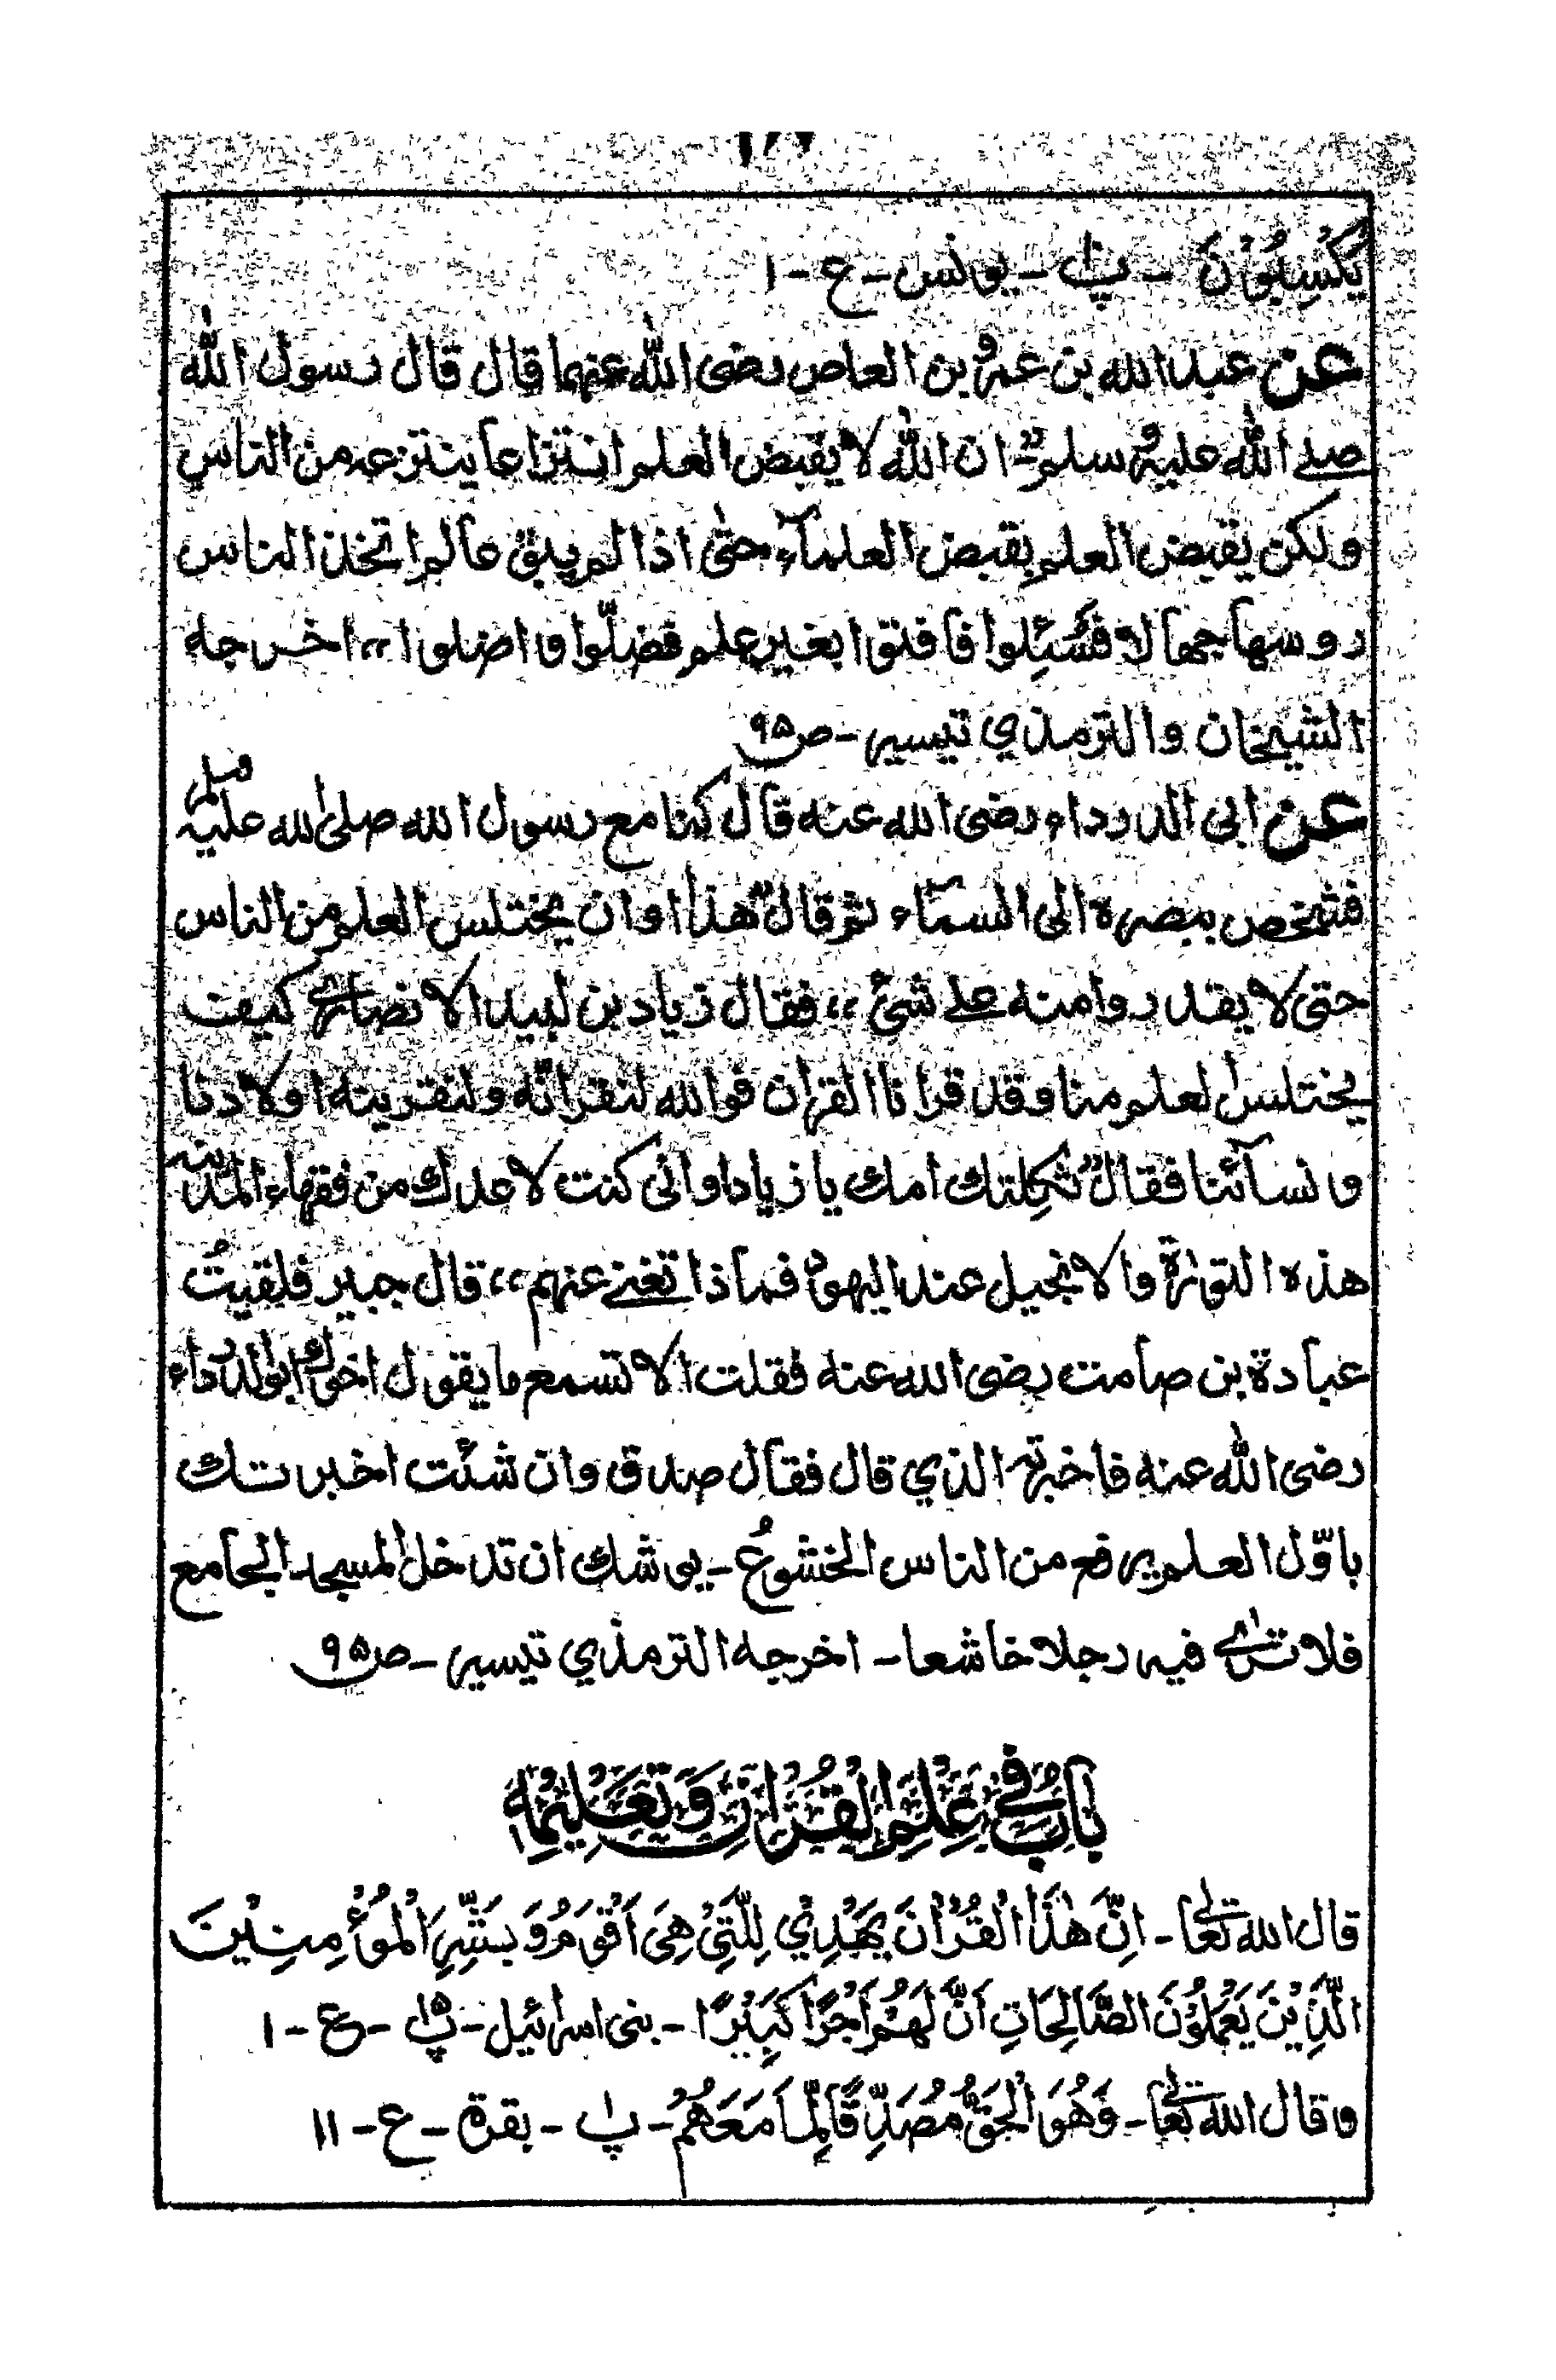 يَكْسِبُوْنَ - پ۱۱ - يونس - ع - ۱
عن عبد الله بن عمرو بن العاص رضى الله عنهما قال قال رسول الله
صلے الله عليه وسلم "ان الله لا يقبض العلم انتزاعا ينتزعه من الناس
ولكن يقبض العلم بقبض العلمآء حتى اذا لم يبق عالم اتخذ الناس
روسها جهالا فَسُئِلوا فافتوا بغير علم فضلّوا واضلوا" اخرجه
الشيخان والترمذي تيسير - ص ۹۵
عن ابى الدرداء رضى الله عنه قال كنا مع رسول الله صلى لله عليه وسلم
فشخص ببصره الى السمآء ثم قال "هذا اوان يختلس العلم من الناس
حتى لا يقدروا منه علے شئ" فقال زياد بن لبيد الانصارى كيف
يختلس لعلم منا وقد قرانا القران فوالله لنقرانّه ولنقرينه اولادنا
ونسآئنا فقال "ثكِلتك امك يا زياد اوانى كنت لاعدك من فقهاء المدينه
هذه التوراة والانجيل عند اليهود فماذا تغنے عنهم" قال جبير فلقيتُ
عبادة بن صامت رضى الله عنه فقلت الا تسمع ما يقول اخوك ابو الدرداء
رضى الله عنه فاخبرته الذي قال فقال صدق وان شئت اخبرتك
باوّل العلم يرفع من الناس الخشوعُ - يوشك ان تدخل المسجد الجامع
فلا ترىٰ فيه رجلا خاشعا - اخرجه الترمذي تيسير - ص ۹۵
بَابٌ فِے عِلْمِ الْقُرْاٰنِ وَتَعْلِيْمِهٖ
قال الله تعالىٰ - اِنَّ هٰذَا الْقُرْاٰنَ يَهْدِيْ لِلَّتِيْ هِىَ اَقْوَمُ وَبَشِّرِ الْمُؤْمِنِيْنَ
الَّذِيْنَ يَعْمَلُوْنَ الصَّالِحَاتِ اَنَّ لَهُمْ اَجْرًا كَبِيْرًا - بنى اسرائيل - پ۱۵ - ع - ۱
وقال الله تعالىٰ - وَهُوَ الْحَقُّ مُصَدِّقًا لِّمَا مَعَهُمْ - پ۱ - بقرة - ع - ۱۱